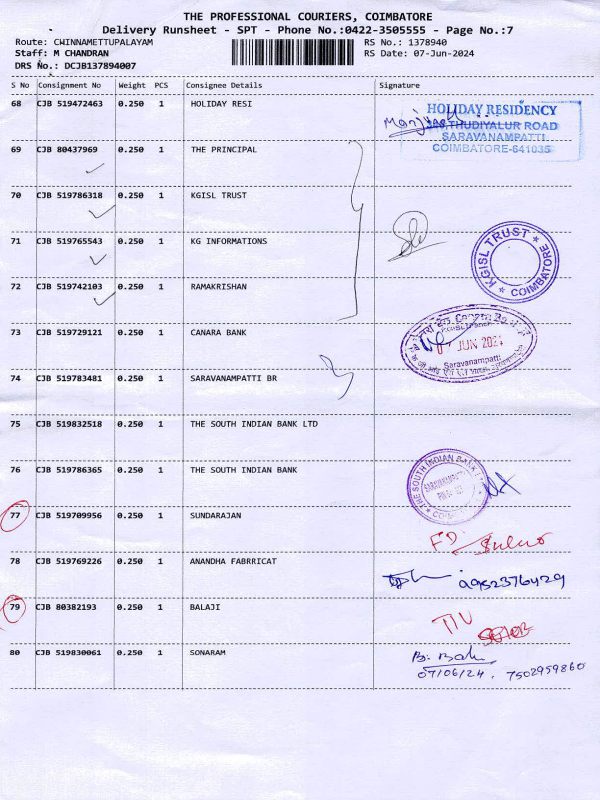 THE PROFESSIONAL COURIERS, COIMBATORE
Delivery Runsheet - SPT - Phone No.:0422-3505555 - Page No.:7
Route: CHINNAMETTUPALAYAM RS No.: 1378940
Staff: M CHANDRAN RS Date: 07-Jun-2024
DRS No.: DCJB137894007
S No Consignment No Weight PCS Consignee Details Signature
68 CJB 519472463 0.250 1 HOLIDAY RESI
HOLIDAY RESIDENCY
THUDIYALUR ROAD
SARAVANAMPATTI
COIMBATORE-641035
69 CJB 80437969 0.250 1 THE PRINCIPAL
70 CJB 519786318 0.250 1 KGISL TRUST
71 CJB 519765543 0.250 1 KG INFORMATIONS
KGISL TRUST
COIMBATORE
72 CJB 519742103 0.250 1 RAMAKRISHAN
73 CJB 519729121 0.250 1 CANARA BANK
JUN 2024
Saravanampatti
74 CJB 519783481 0.250 1 SARAVANAMPATTI BR
75 CJB 519832518 0.250 1 THE SOUTH INDIAN BANK LTD
76 CJB 519786365 0.250 1 THE SOUTH INDIAN BANK
THE SOUTH INDIAN BANK
77 CJB 519709956 0.250 1 SUNDARAJAN
78 CJB 519769226 0.250 1 ANANDHA FABRRICAT
9952376429
79 CJB 80382193 0.250 1 BALAJI
80 CJB 519830061 0.250 1 SONARAM
07/06/24, 7502959860